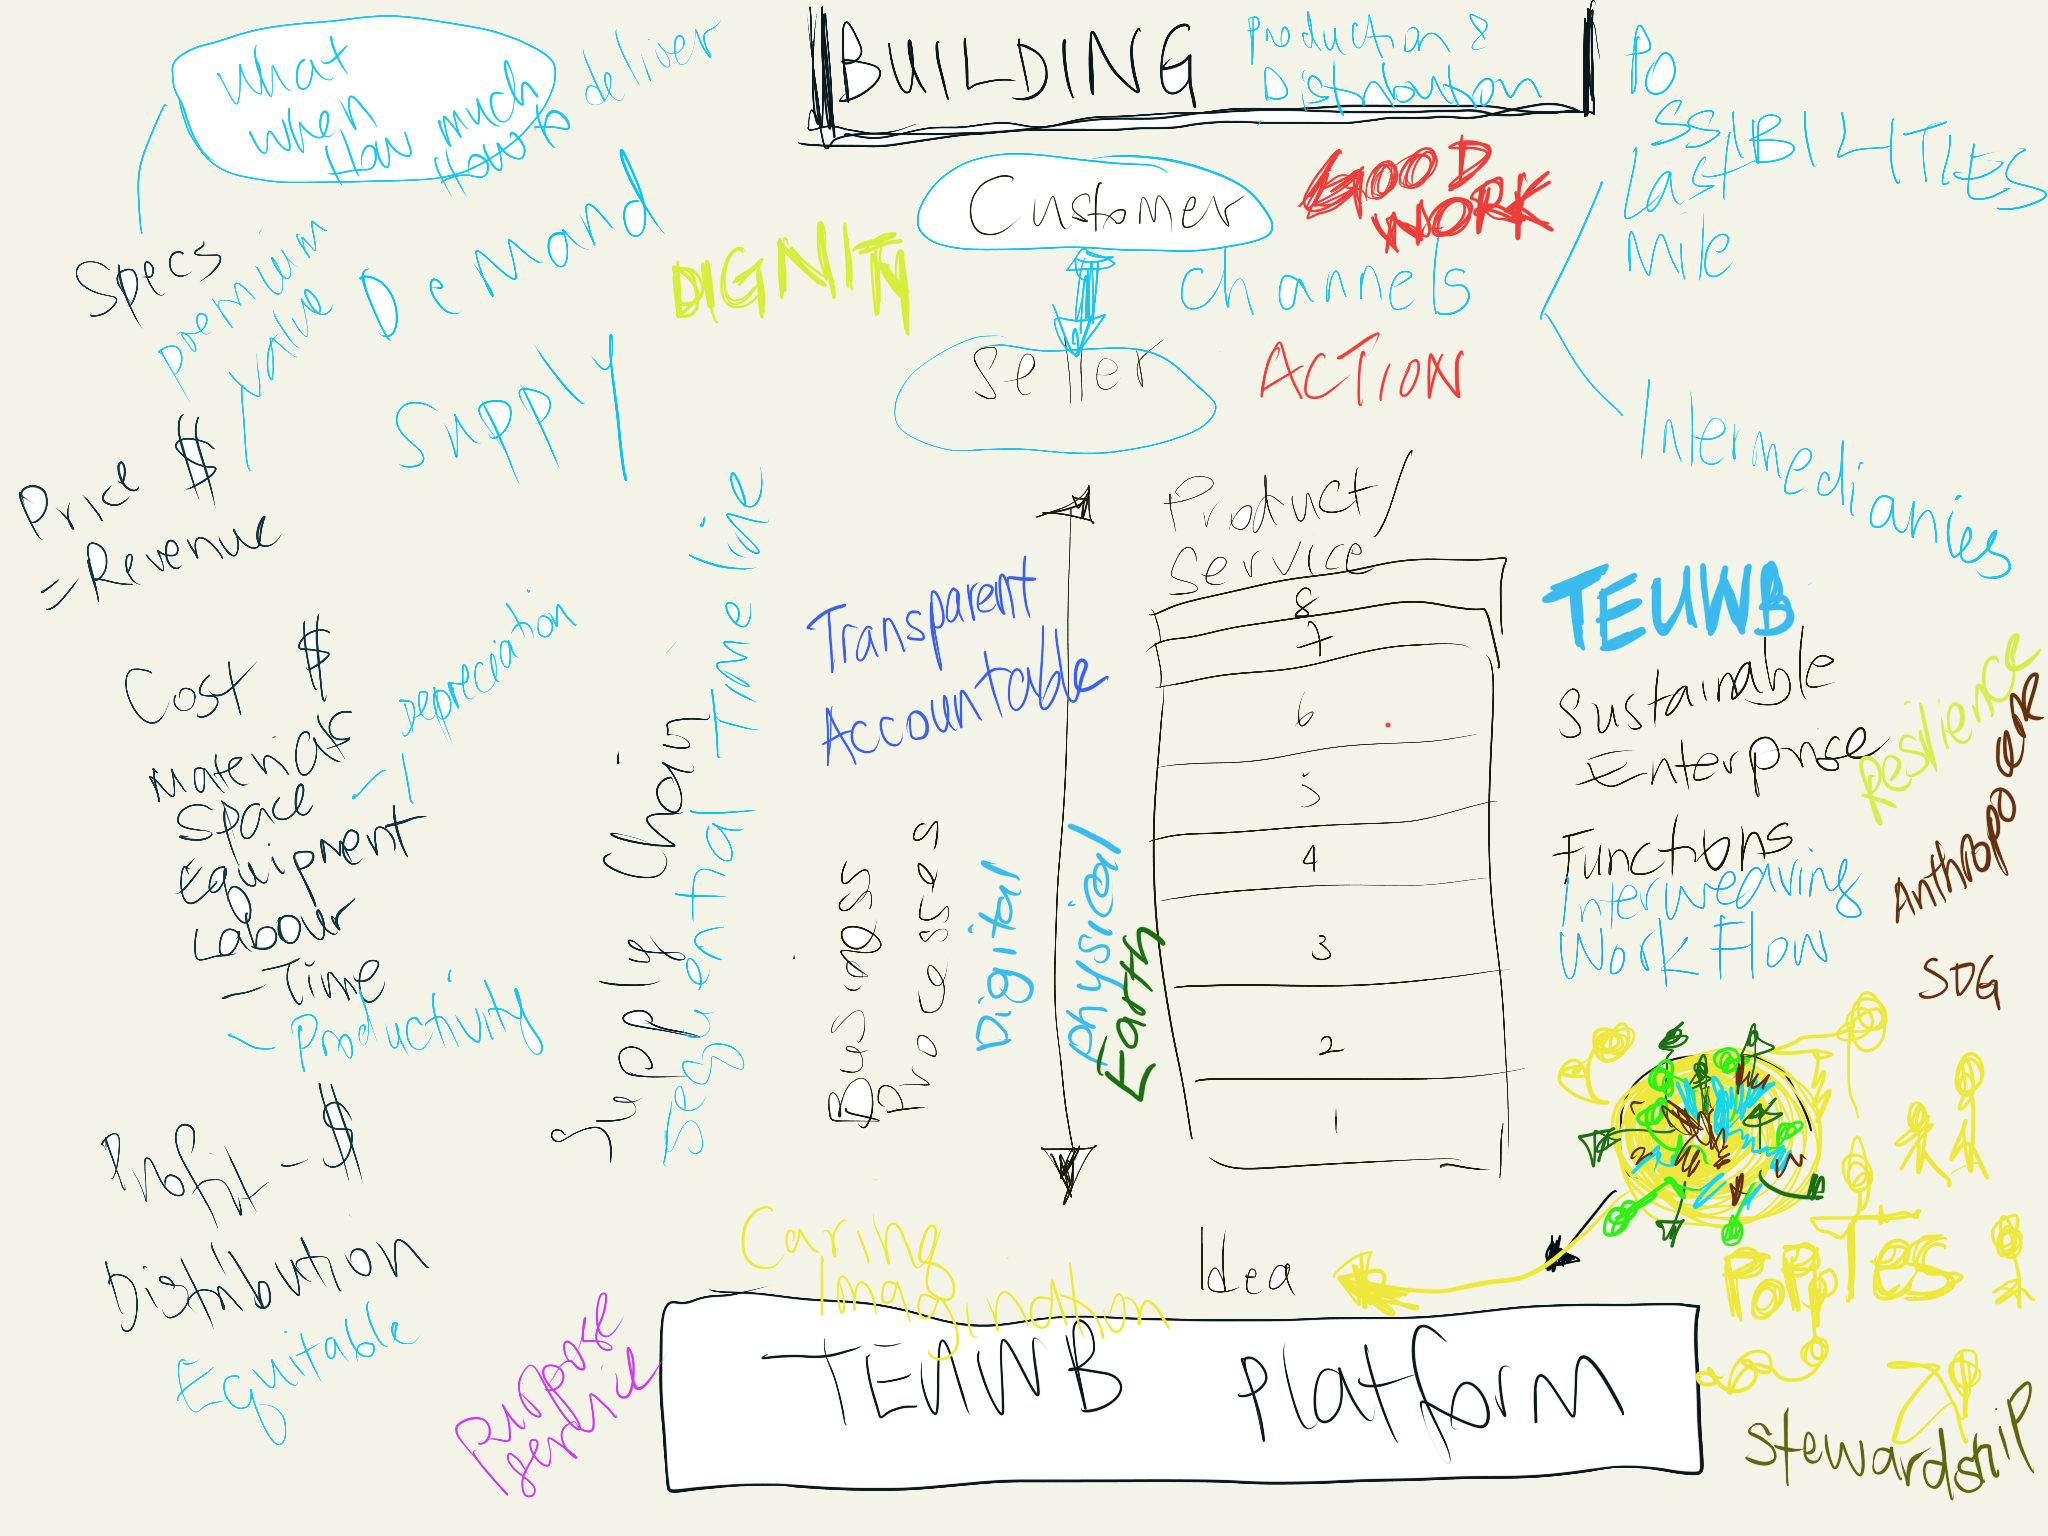 What
when
How much
How to deliver
BUILDING
Production &
Distribution
Po
SSIBILITIES
Last
Mile
Customer
GOOD
WORK
Specs
premium
value
Demand
DIGNITY
Channels
Seller
ACTION
Supply
Intermediaries
Price $
=Revenue
Product/
Service
8
7
6
5
4
3
2
1
Transparent
Accountable
TEUWB
Sustainable
Enterprise
Functions
Interweaving
Work Flow
Resilience
Anthropocene
SDG
Cost $
Materials
Space
Equipment
Depreciation
Labour
- Time
- Productivity
Supply Chain
Sequential Time line
Business
Processes
Digital
Physical
Earth
Profit - $
Distribution
Equitable
Caring
Imagination
Idea
Purpose
Service
TEUWB Platform
Stewardship